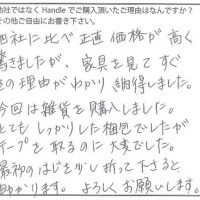 他社ではなく Handle でご購入頂いたご理由はなんですか?
その他ご自由にお書き下さい。
他社に比べ 正直 価格が高く
驚きましたが、家具を見て すぐ
の理由がわかり納得しました。
今回は雑貨を購入しました。
とても しっかりした梱包でしたが
テープを取るのに大変でした。
最初のはじを少し折って下さると
助かります。 よろしくお願いします。